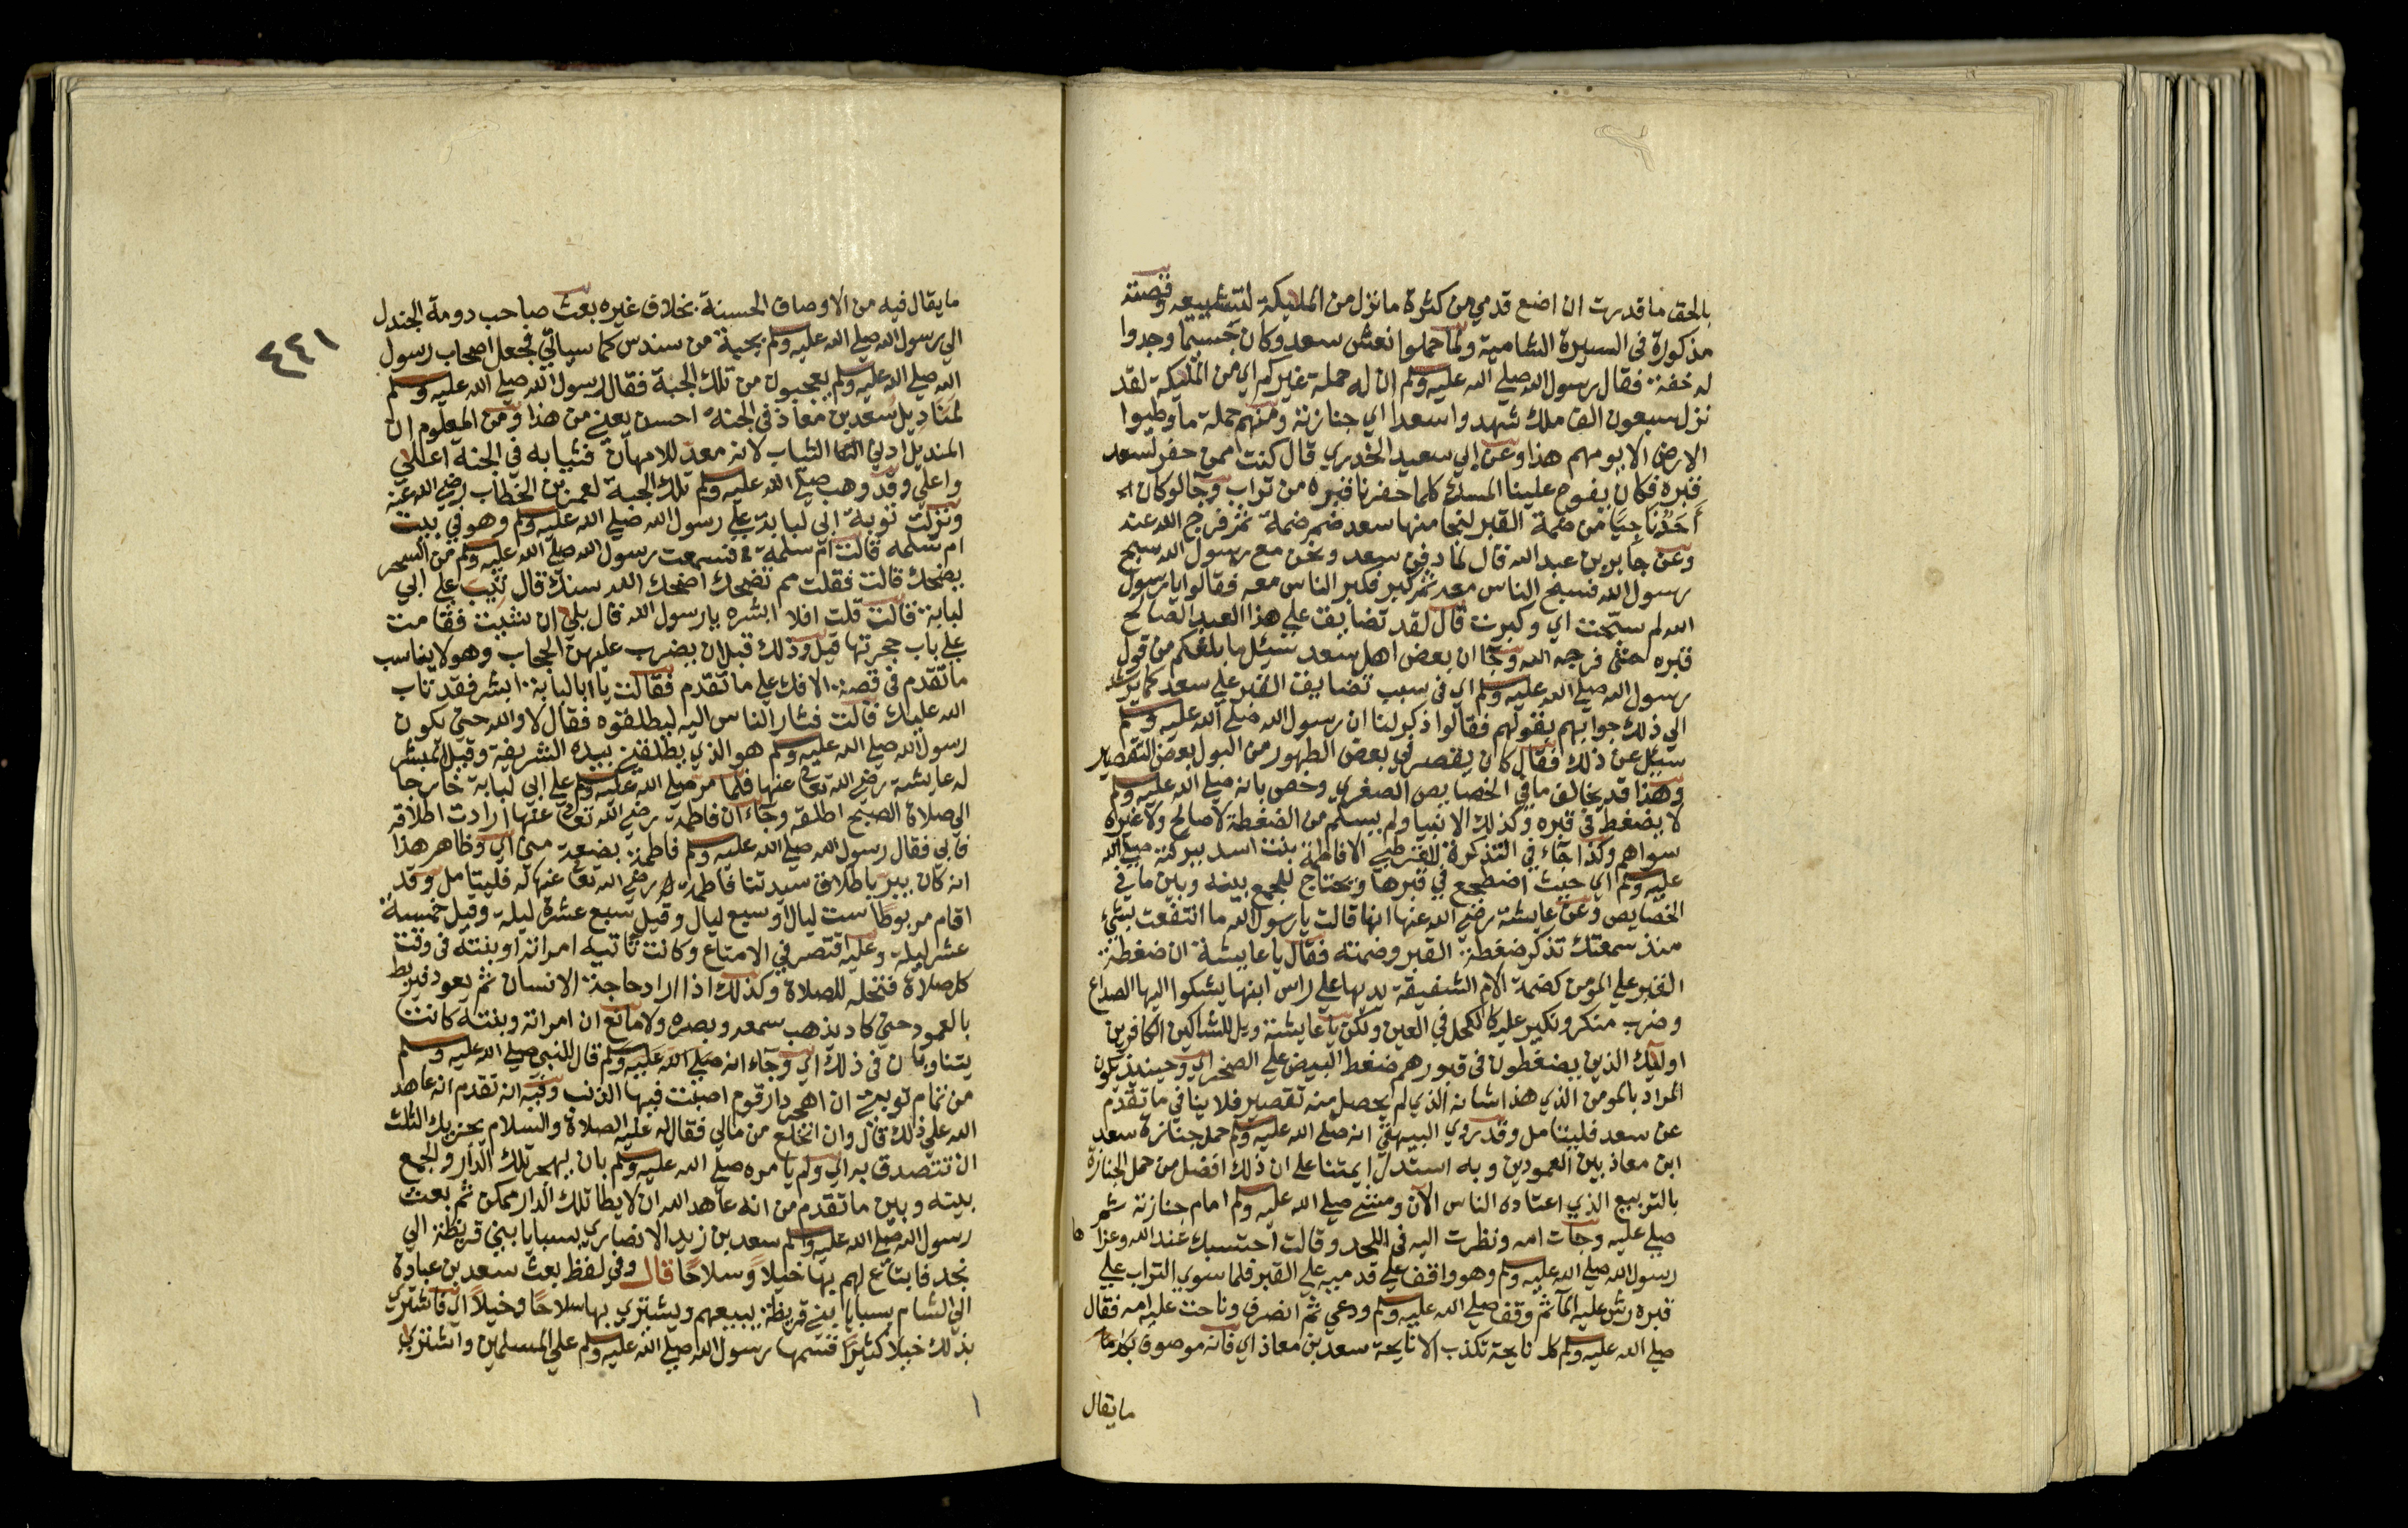 بالحق ما قدرت ان اضع قدمي من كثرة ما نزل من المليكة لتشييعه وقصته
مذكورة في السيرة الشامية ولما حملوا نعش سعد وكان جسيما وجدوا
له خفة فقال رسول الله صلي الله عليه وسلم ان له حملة غيركم اي من المليكة لقد
نزل سبعون الف ملك شهدوا سعدا اي جنازته ومنهم حملة ما وطيوا
الارض الا يومهم هذا وعن ابي سعيد الخدري قال كنت ممن حفر لسعد
قبره فكان يفوح علينا المسك كلما حفرنا قبره من تراب وجا لو كان
احد ناجيا من ضمة القبر لنجا منها سعد ضم ضمة ثم فرج الله عنه
وعن جابر بن عبد الله قال لما دفن سعد ونحن مع رسول الله سبح
رسول الله فسبح الناس معه ثم كبر فكبر الناس معه فقالوا يا رسول
الله لم سبحت اي وكبرت قال لقد تضايق علي هذا العبد الصالح
قبره حتى فرجه الله وجا ان بعض اهل سعد سئل ما بلغكم من قول
رسول الله صلي الله عليه وسلم اي في سبب تضايق القبر علي سعد كما يرشد
الي ذلك جوابهم بقولهم فقالوا ذكر لنا ان رسول الله صلي الله عليه وسلم
سيل عن ذلك فقال كان يقصر في بعض الطهور من البول بعض التقصير
وهذا قد يخالف ما في الخصايص الصغري وخص بانه صلي الله عليه وسلم
لا يضغط في قبره وكذلك الانبيا ولم يسلم من الضغطة لا صالح ولا غيره
سواهم وكذا جاء في التذكرة للقرطبي الا فاطمة بنت اسد ببركته صلي الله
عليه وسلم اي حيث اضطجع في قبرها ويحتاج للجمع بينه وبين ما في
الخصايص وعن عايشة رضي الله عنها انها قالت يا رسول الله ما انتفعت بشيء
منذ سمعتك تذكر ضغطة القبر وضمته فقال يا عايشة ان ضغطة
القبر علي المومن كضمة الام الشفيقة يديها علي راس ابنها يشكوا اليها الصداع
وضرب منكر ونكير عليه كالكحل في العين ولكن يا عايشة ويل للشاكين الكافرين
اوليك الذين يضغطون في قبورهم ضغط البيض علي الصخر اي وحينيذ يكون
المراد بالمومن الذي هذا شانه الذي لم يحصل منه تقصير فلا ينافي ما تقدم
عن سعد فليتامل وقد روي البيهقي انه صلي الله عليه وسلم حمل جنازة سعد
ابن معاذ بين العمودين وبه استدل ايمتنا علي ان ذلك افضل من حمل الجنازة
بالتربيع الذي اعتاده الناس الآن ومشي صلي الله عليه وسلم امام جنازته ثم
صلي عليه وجات امه ونظرت اليه في اللحد وقالت احتسبك عند الله وعزاها
رسول الله صلي الله عليه وسلم وهو واقف علي قدميه علي القبر فلما سوي التراب علي
قبره رش عليه الما ثم وقف صلي الله عليه وسلم ودعي ثم انصرف وناحت عليه امه فقال
صلي الله عليه وسلم كل نايحة تكذب الا نايحة سعد بن معاذ اي فانه موصوف بكل ما
ما يقال
٤٤١
ما يقال فيه من الاوصاف الحسنة بخلاف غيره بعث صاحب دومة الجندل
الي رسول الله صلي الله عليه وسلم بجبة من سندس كما سياتي فجعل اصحاب رسول
الله صلي الله عليه وسلم يعجبون من تلك الجبة فقال رسول الله صلي الله عليه وسلم
لمناديل سعد بن معاذ في الجنة احسن يعني من هذا ومن المعلوم ان
المنديل ادني الثياب لانه معد للامهان فثيابه في الجنة اعلي
واعلي وقد وهب صلي الله عليه وسلم تلك الجبة لعمر بن الخطاب رضي الله عنه
ونزلت توبة ابي لبابة علي رسول الله صلي الله عليه وسلم وهو في بيت
ام سلمه قالت ام سلمة فسمعت رسول الله صلي الله عليه وسلم من السحر
يضحك قالت فقلت مم تضحك اضحك الله سنك قال تيب علي ابي
لبابة قالت قلت افلا ابشره يا رسول الله قال بلي ان شيت فقامت
علي باب حجرتها قيل وذلك قبل ان يضرب عليهن الحجاب وهو لا يناسب
ما تقدم في قصة الافك علي ما تقدم فقالت يا ابا لبابة ابشر فقد تاب
الله عليك قالت فثار الناس اليه ليطلقوه فقال لا والله حتي يكون
رسول الله صلي الله عليه وسلم هو الذي يطلقني بيده الشريفة وقيل المبشر
له عايشة رضي الله تعالى عنها فلما مر صلي الله عليه وسلم علي ابي لبابة خارجا
الي صلاة الصبح اطلقه وجاء ان فاطمة رضي الله تعالى عنها ارادت اطلاقه
فابي فقال رسول الله صلي الله عليه وسلم فاطمة بضعة مني اي وظاهر هذا
انه كان يبر باطلاق سيدتنا فاطمة رضي الله تعالى عنها له فليتامل وقد
اقام مربوطا ست ليال او سبع ليال وقيل سبع عشرة ليلة وقيل خمسة
عشر ليلة وعليه اقتصر في الامتاع وكانت تاتيه امراته او بنته في وقت
كل صلاة فتحله للصلاة وكذلك اذا اراد حاجة الانسان ثم يعود فيربط
بالعمود حتي كاد يذهب سمعه وبصره ولا مانع ان امراته وبنته كانت
يتناوبان في ذلك اي وجاء انه صلي الله عليه وسلم قال للنبي صلي الله عليه وسلم
من تمام توبتي ان اهجر دار قوم اصبت فيها الذنب وفيه انه تقدم انه عاهد
الله علي ذلك قال وان انخلع من مالي فقال له عليه الصلاة والسلام يجزيك الثلث
ان تتصدق به اي ولم يامره صلي الله عليه وسلم بان يهجر تلك الدار والجمع
بينه وبين ما تقدم من انه عاهد الله ان لا يطا تلك الدار ممكن ثم بعث
رسول الله صلي الله عليه وسلم سعد بن زيد الانصاري بسبايا بني قريظة الي
نجد فابتاع لهم بها خيلا وسلاحا قال وفي لفظ بعث سعد بن عبادة
الي الشام بسبايا بني قريظة يبيعهم ويشتري بها سلاحا وخيلا اي فاشتري
بذلك خيلا كثيرا قسمها رسول الله صلي الله عليه وسلم علي المسلمين واشتري